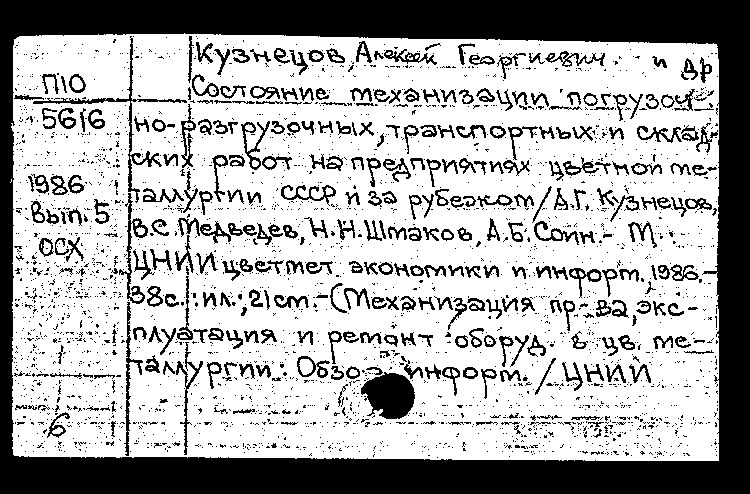 Кузнецов, Алексей Георгиевич и др
П10
Состояние механизации погрузоч-
5616
но-разгрузочных, транспортных и склад-
ских работ на предприятиях цветной ме-
1986
таллургии СССР и за рубежом / А.Г. Кузнецов,
Вып. 5
В.С. Медведев, Н.Н. Шмаков, А.Б. Соин. - М.:
ОСХ
ЦНИИцветмет экономики и информ., 1986.-
38с.: ил.; 21 cm. - (Механизация пр-ва, экс-
плуатация и ремонт оборуд. в цв. ме-
таллургии: Обзор. информ. / ЦНИИ
6